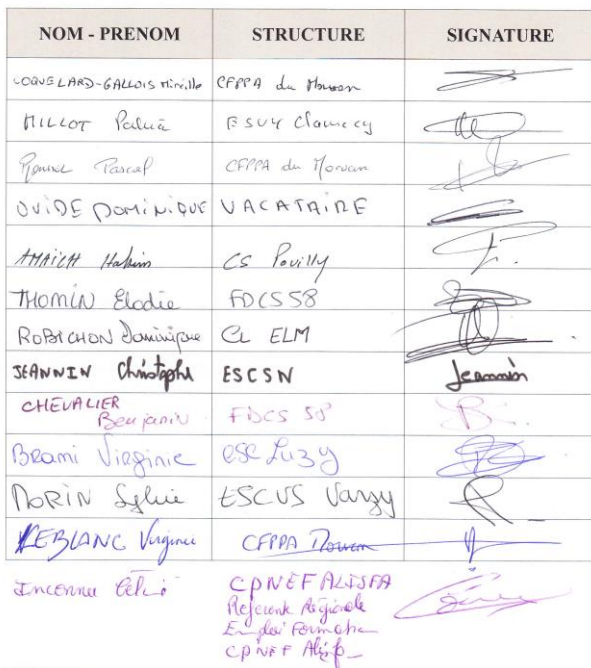 NOM - PRENOM STRUCTURE SIGNATURE
COQUELARD-GALLOIS Mireille CFPPA du Morvan
MILLOT Patricia ESVY Clamecy
Pascal CFPPA du Morvan
OVIDE DOMINIQUE VACATAIRE
AMAICH Hakim CS Pouilly
THOMIN Elodie FDCS58
ROBICHON Dominique CL ELM
JEANNIN Christophe ESCSN Jeannin
CHEVALIER
Benjamin FDCS 58
Brami Virginie ESC Luzy
MORIN Sylvie ESCVS Varzy
LEBLANC Virginie CFPPA Morvan
CPNEF ALISFA
Référente Régionale
Emploi Formation
CPNEF Alisfa